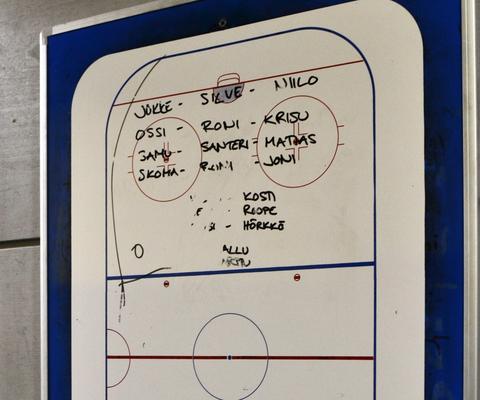 JÖKKE - SILVE - NIILO
OSSI - RONI - KRISU
SAMU - SANTERI - MATIAS
SKOHA - - JONI
KOSTI
ROOPE
HÖRKKÖ
ALLU